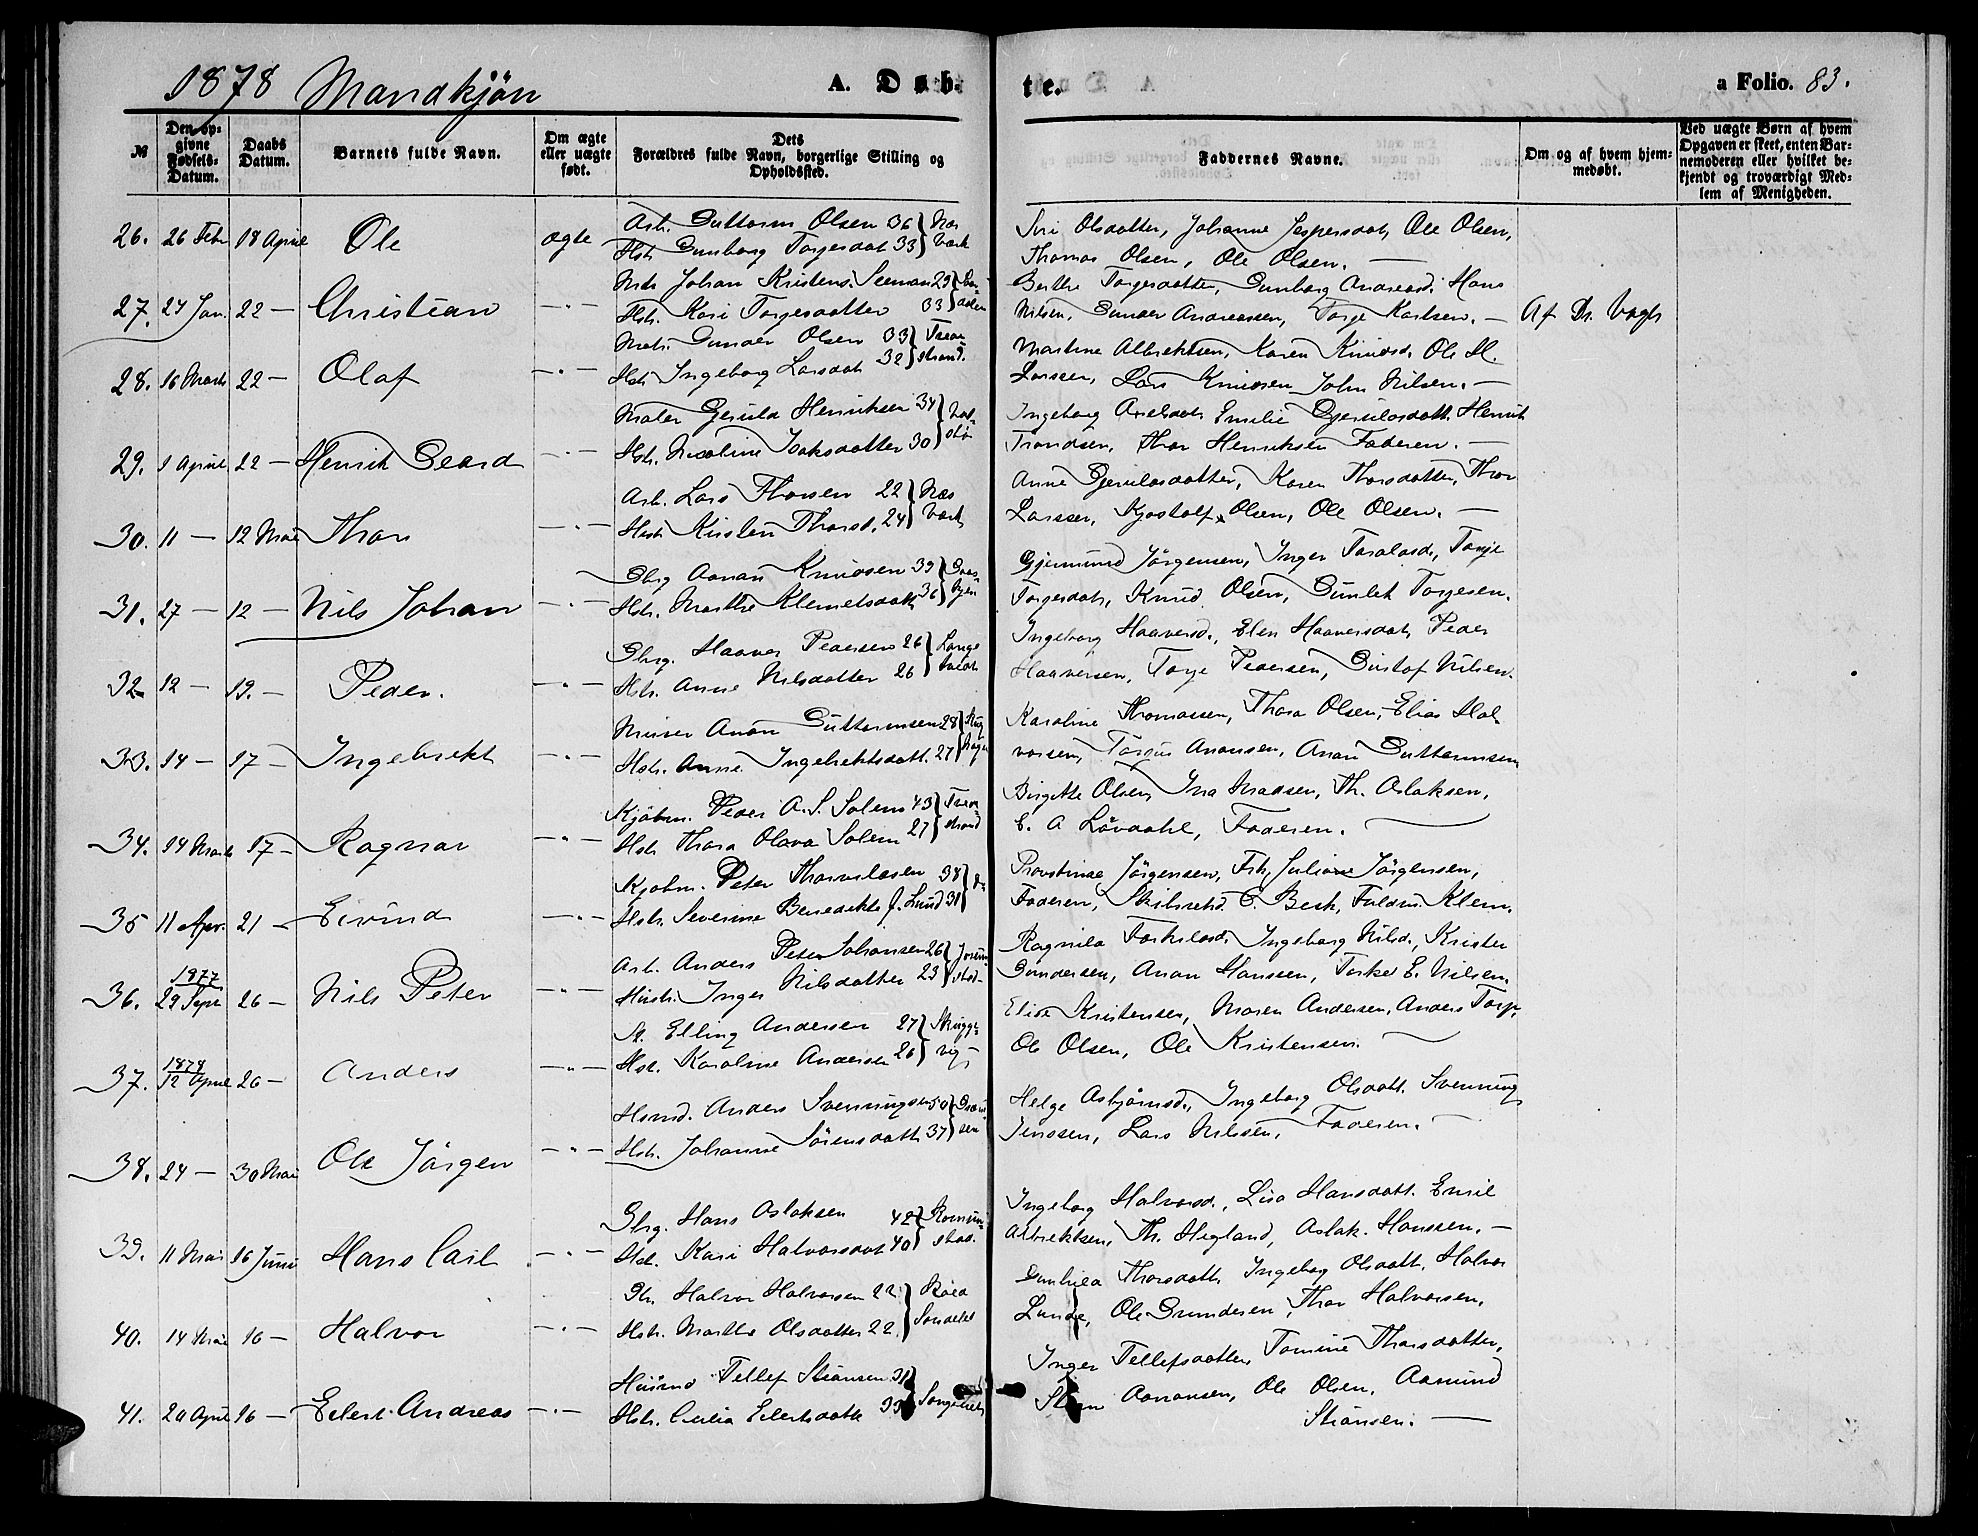 1878 Mandkjön A. Døb- te. a Folio. 83.
№
Den opgivne Fødsels-Datum.
Daabs Datum.
Barnets fulde Navn.
Om ægte eller uægte født.
Dets Forældres fulde Navn, borgerlige Stilling og Opholdssted.
Faddernes Navne.
Om og af hvem hjemmedøbt.
Ved uægte Børn af hvem Opgaven er skeet, enten Barnemoderen eller hvilket bekjendt og troværdigt Medlem af Menigheden.
26. 26 Febr 18 April Ole ægte
Arb. Guttorm Olsen 36 } Næs
Hstr. Gunborg Torjesdat 33 } Værk
Siri Olsdatter, Johanne Jespersdat, Ole Olsen,
Thomas Olsen, Ole Olsen. —
27. 24 Jan. 22 — Christian —"—
Johan Kristens. 29
Hstr. Kari Torjesdatter 33
Berthe Torjesdatter, Gunborg Andreasd. Hans
Nilsen, Gunder Andreassen, Torje Karlsen. —
Af Dr. Vogt
28. 16 Marts 22 — Olaf —"—
Gunder Olsen 33 } Tvede
Hstr. Ingeborg Larsdat 32 } strand.
Martine Albrektsen, Karen Knudsd. Ole H.
Larssen, Lars Knudsen John Nilsen. —
29. 9 April 22 — Henrik Geard —"—
Maler Gjeruld Henriksen 34
Hstr. Nicoline Isaksdatter 30
Ingeborg Axelsdat, Emilie Gjeruldsdatt. Henrik
Trondsen, Thor Henriksen Faderen. —
30. 11 — 12 Mai Thor —"—
Arb. Lars Thorsen 22 } Næs
Hstr. Kirsten Thorsd. 24 } Værk
Anne Gjeruldsdatter, Karen Thorsdatter, Thor
Larssen, Kjostolf Olsen, Ole Olsen. —
31. 27 — 12 — Nils Johan —"—
Gbrg Aanan Knudsen 39
Hstr. Marthe Klemetsdatt 36
Gjermund Jörgensen, Inger Taraldsd., Torje
Torjesdat, Knud Olsen, Gunlek Torjesen.
32 12 — 19. — Peder. —"—
Gbrg. Haaver Pedersen 26 } Lange
Hstr. Anne Nilsdatter 26
Ingeborg Haaversd., Elen Haaversdat, Peder
Haaversen, Torje Pedersen, Gustaf Nilsen.
33. 14 — 17 — Ingebrekt —"—
Murer Anon Guttormsen 28
Hstr. Anne Ingebrektsdatt. 27
Karoline Thomassen, Thora Olsen, Elias Hal
vorsen, Torjus Anonsen, Anon Guttormsen
34. 14 Marts 17 — Ragnar —"—
Kjöbm. Peder A. S. Solem 43 } Tvede
Hstr Thora Olava Solem 27 } strand
Birgitte Olsen, Ina Madsen, Th. Aslaksen,
E. A Lövdahl, Faderen.
35 11 Apr. 21 — Eivind —"—
Kjöbm. Peter Thorvaldsen 38 } do
Hstr. Severine Benedikte J. Lund 31
Provstinde Jörgensen, Frk. Juliane Jörgensen,
Faderen, C. Beck, Klem.
36. 1877 29 Sept 26 — Nils Peter —"—
Arb. Anders Peter Johansen 26
Hustr. Inger Nilsdatter 23
Ragnild Torkilsd. Ingeborg Nilsd., Krister
Gundersen, Anon Hanssen, Torkel E. Nilsen.
37. 1878 12 April 26 — Anders —"—
St. Elling Andersen 27
Hst. Karoline Andersen 26
Elise Kristensen, Maren Andersen, Anders Torje
Ole Olsen, Ole Kristensen.
38. 24 — 30 Mai Ole Jörgen —"—
Husmd. Anders Svenningsen 50
Hstr. Johanne Sörensdatt 37
Helge Asbjörnsd., Ingeborg Olsdatt. Svenning
Jenssen, Lars Nilssen, Faderen.
39. 11 Mai 16 Juni Hans Carl —"—
Gbrg. Hans Aslaksen 42
Hst. Kari Halvorsdat 40
Ingeborg Halvorsd., Lisa Hansdatt. Emil
Albrektsen, Th. Hegland, Aslak Hanssen. —
40. 14 Mai 16 — Halvor —"—
Halvor Halvorsen 22
Hstr. Marthe Olsdatter 22. } Söndeled
Gunhild Thorsdatt, Ingeborg Olsdatt. Halvor
Lunde, Ole Gundersen, Thor Halvorsen.
41. 20 April 16 — Edert Andreas —"—
Husmd Tellef Stiansen 31
Hstr. Cecilia Edertsdatt 33
Inger Tellefsdatter, Tomine Thorsdatter,
Aanonsen, Ole Olsen, Aamund
Stiansen. —